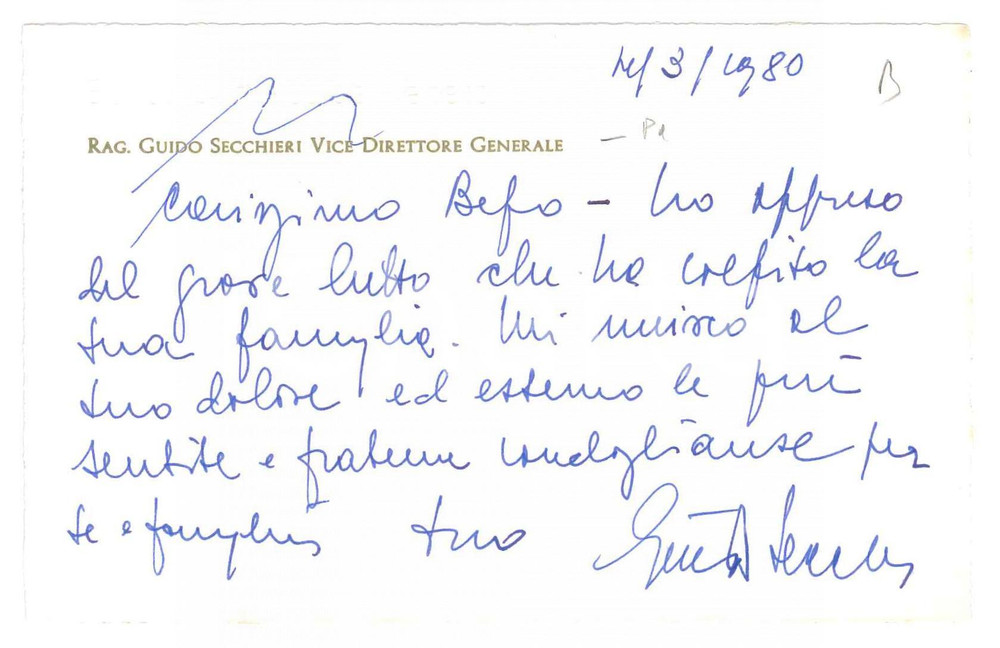 /3/1980
B
RAG. GUIDO SECCHIERI VICE DIRETTORE GENERALE
Carissimo Bepo - ho appreso
del grave lutto che ha colpito la
tua famiglia. Mi unisco al
tuo dolore ed esterno le più
sentite e fraterne condoglianze per
te e famiglia tuo Guido Secchieri